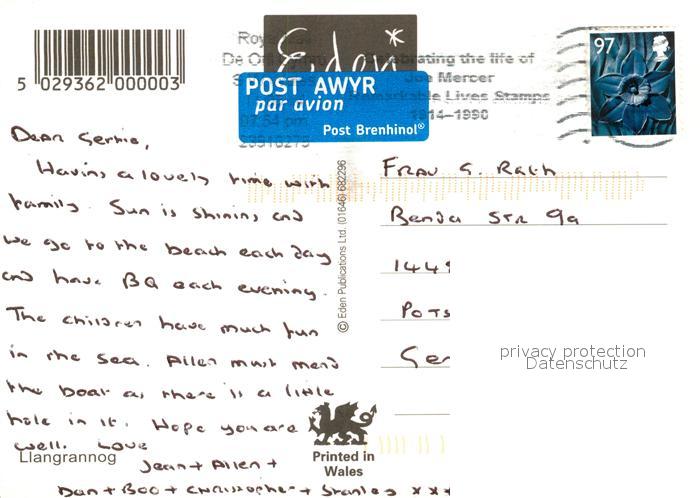 5 029362 000003
Eden*
POST AWYR
par avion
Post Brenhinol®
Celebrating the life of
Joe Mercer
Remarkable Lives Stamps
1914-1990
07:54 pm
97
Dear Gertie,
Having a lovely time with
family. Sun is shining and
we go to the beach each day
and have BQ each evening.
The children have much fun
in the sea. Allen must mend
the boat as there is a little
hole in it. Hope you are
well. Love
Jean + Allen +
Dan + Boo + Christopher + Stanley xxx
Llangrannog
© Eden Publications Ltd. (01646) 682296
Printed in
Wales
Frau G. Rath
Benda Str 9a
1449
Pots
Ger
privacy protection
Datenschutz